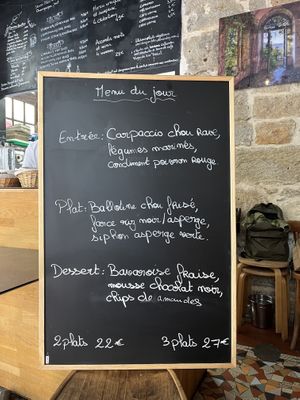 Menu du jour
Entrée: Carpaccio chou Rave,
légumes marinés,
condiment poivron rouge.
Plat: Ballotine chou frisé,
farce riz noir/asperge,
siphon asperge verte.
Dessert: Bavaroise fraise,
mousse chocolat noir,
chips de amandes
2 plats 22€ 3 plats 27€